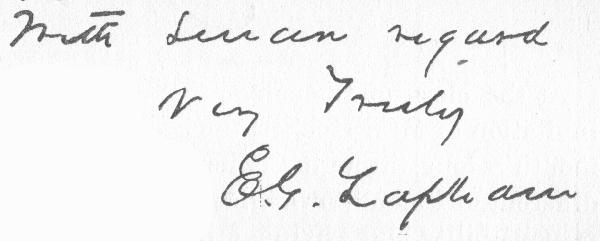 With sincere regard
Very Truly
E.G. Lapham